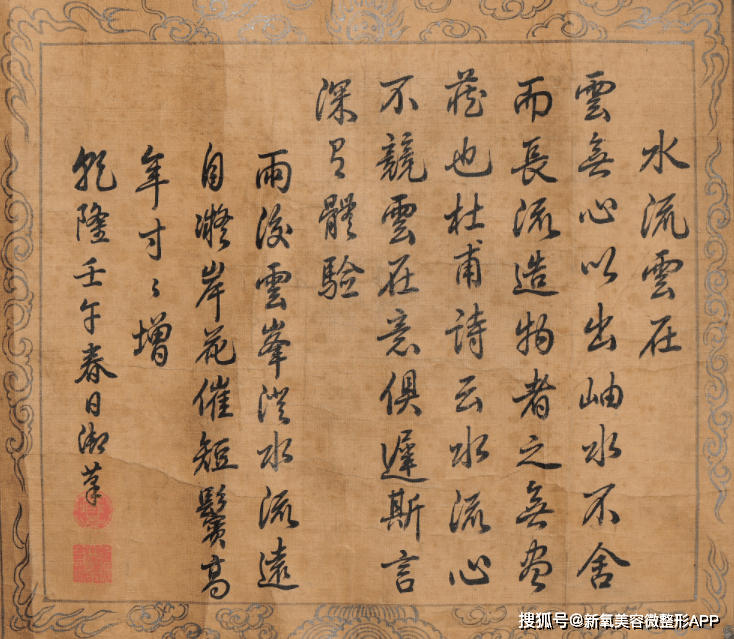 水流雲在
雲無心以出岫水不舍
而長流造物者之無盡
藏也杜甫詩云水流心
不競雲在意俱遲斯言
深有體驗
雨後雲峯澄水流遠
自凝岸花催短鬢高
年寸〻增
乾隆壬午春日御筆
搜狐号@新氧美容微整形APP